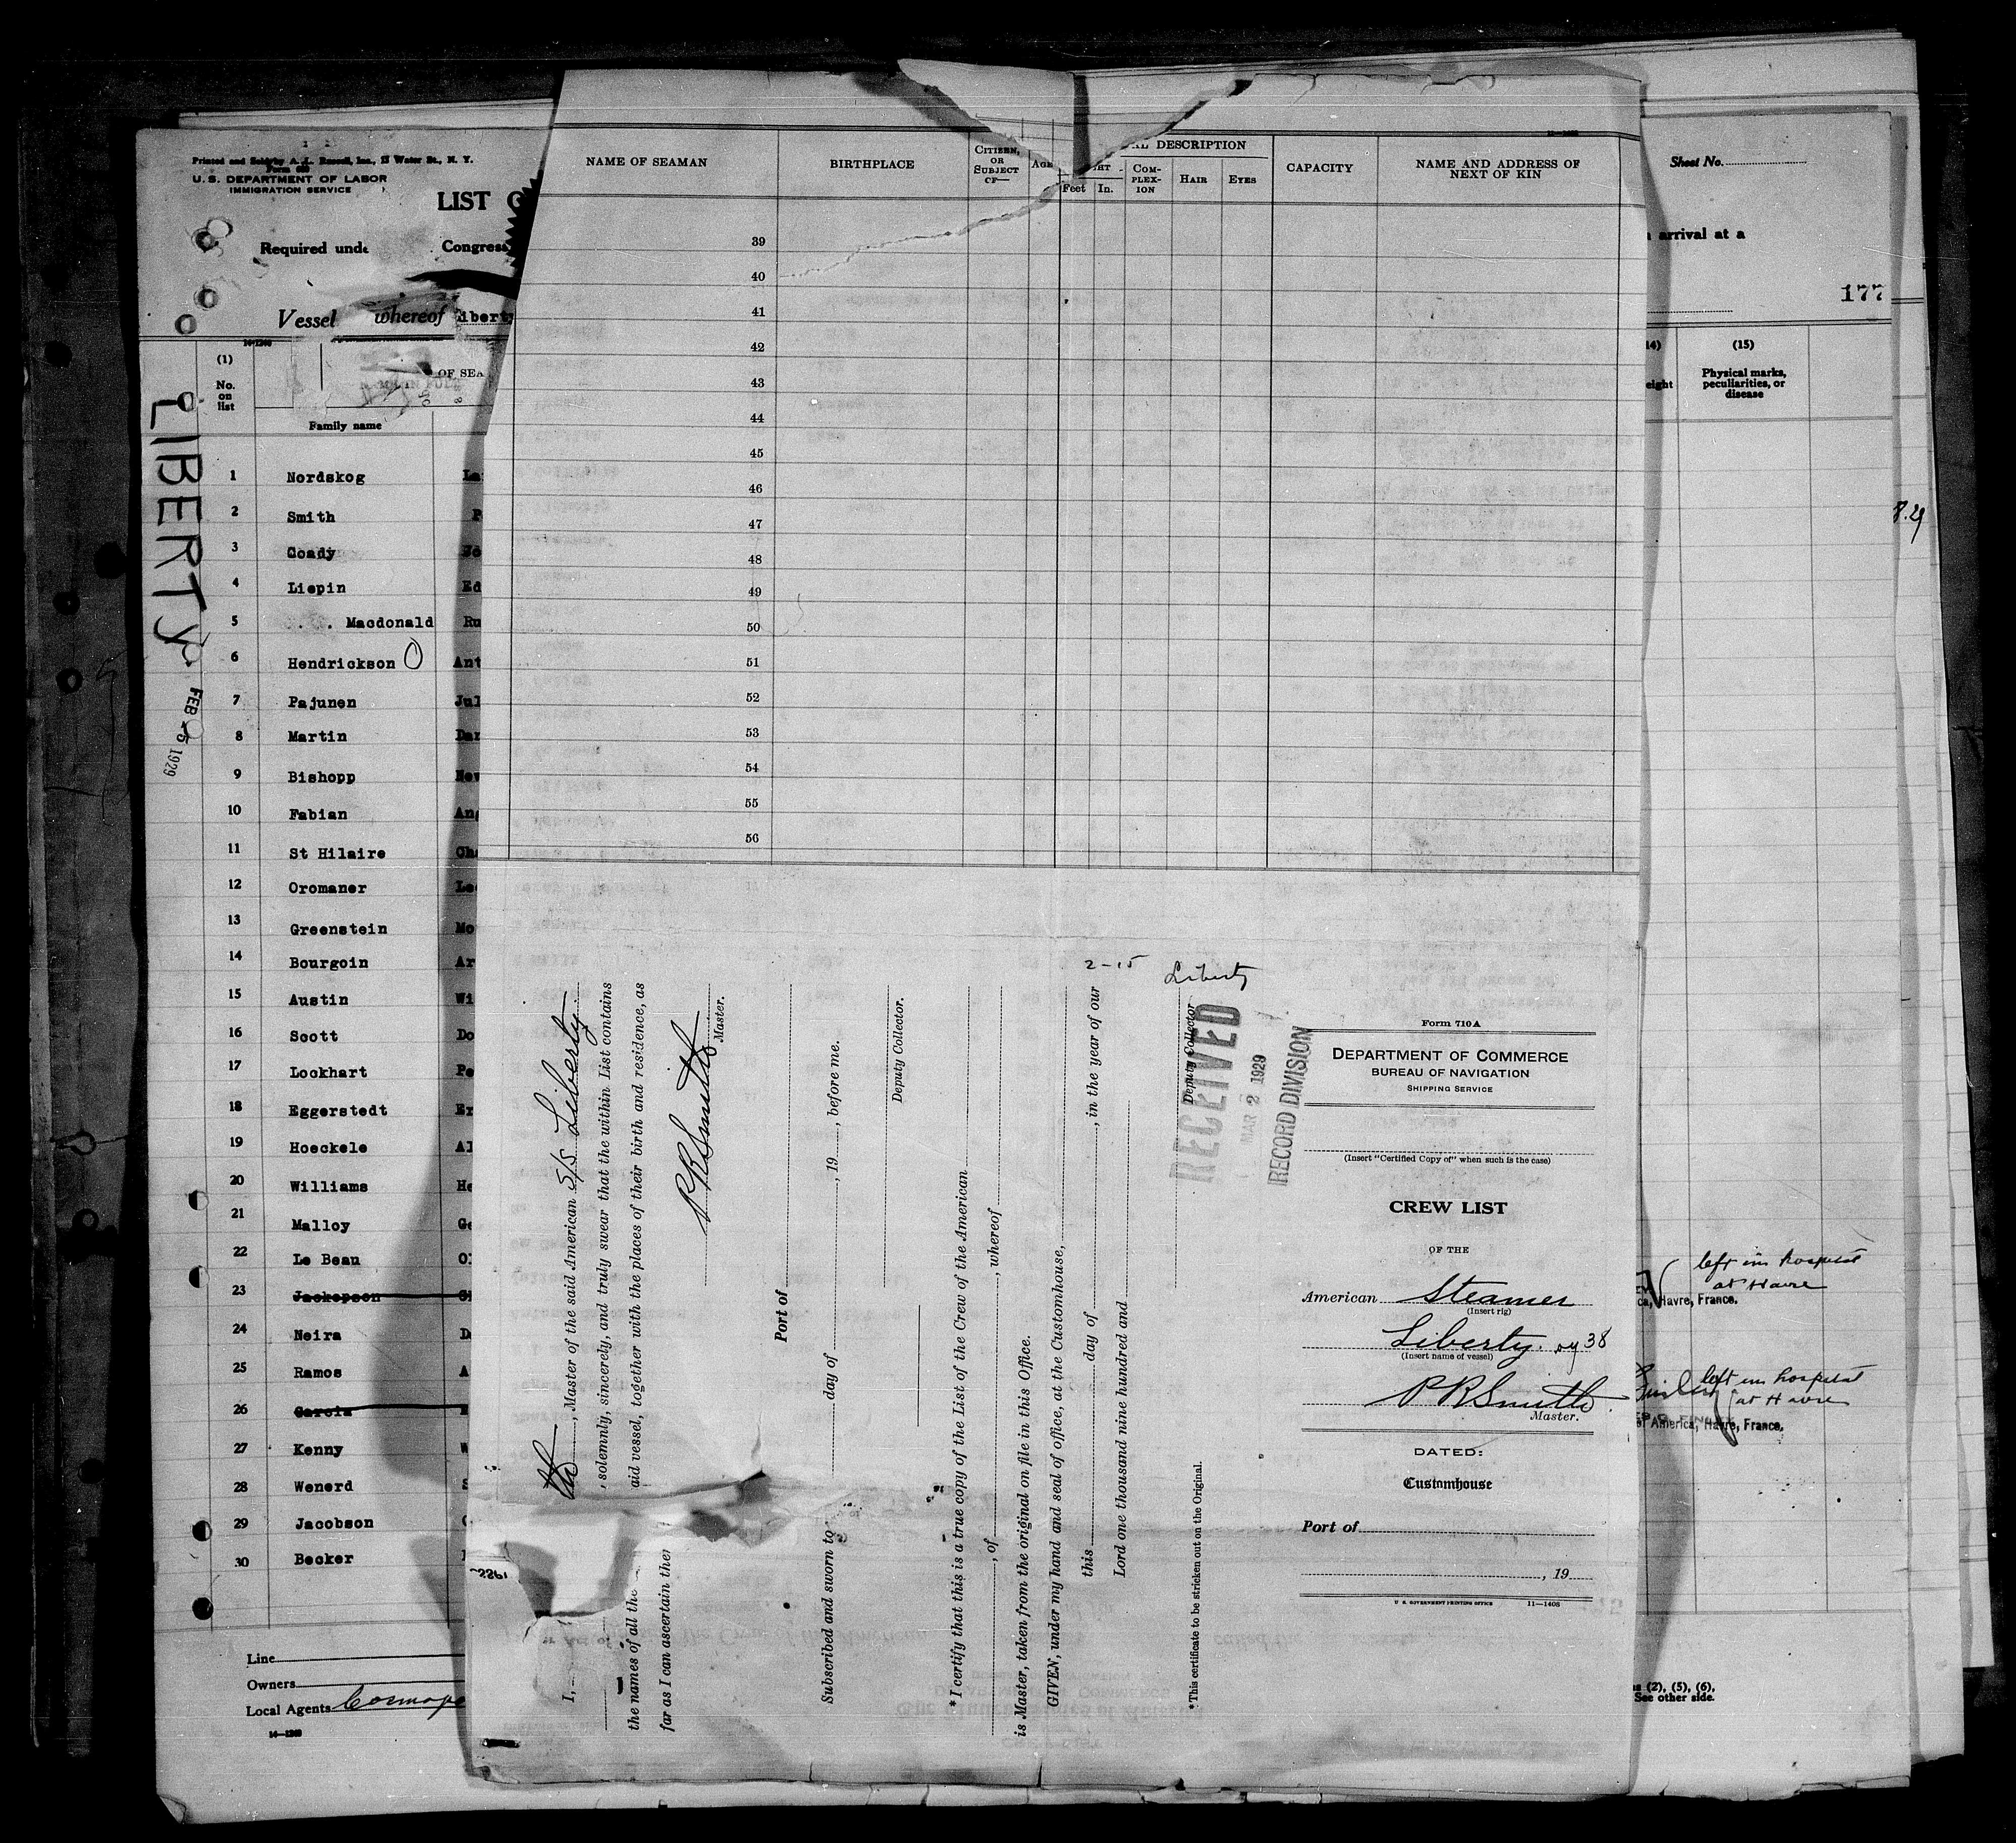 Printed and Sold by A. L. Russell, Inc., 12 Water St., N. Y.
U. S. DEPARTMENT OF LABOR
IMMIGRATION SERVICE
LIST
Required unde
Congress
Vessel whereof Liberty
(1)
No. on list
OF SEA
Family name
1 Nordskog La
2 Smith P
3 Coady
4 Liepin Ed
5 Macdonald Ru
6 Hendrickson Ant
7 Pajunen Jul
8 Martin Dan
9 Bishopp
10 Fabian Ang
11 St Hilaire Cha
12 Oromaner Le
13 Greenstein Mo
14 Bourgoin Ar
15 Austin Wi
16 Scott Do
17 Lockhart Pe
18 Eggerstedt Er
19 Hoeckele Al
20 Williams He
21 Malloy Ge
22 Le Beau Ol
23 Jackopson
24 Neira
25 Ramos A
26 Garcia
27 Kenny W
28 Wenerd S
29 Jacobson
30 Becker
Line
Owners
Local Agents Cosmope
14—1269
LIBERTY
FEB 25 1929
NAME OF SEAMAN
BIRTHPLACE
CITIZEN, OR SUBJECT OF—
AGE
AL DESCRIPTION
HT
Feet In.
COM-PLEX-ION
HAIR
EYES
CAPACITY
NAME AND ADDRESS OF NEXT OF KIN
39
40
41
42
43
44
45
46
47
48
49
50
51
52
53
54
55
56
I, , Master of the said American S/S Liberty
, solemnly, sincerely, and truly swear that the within List contains
the names of all the aid vessel, together with the places of their birth and residence, as
far as I can ascertain ther
P R Smith
Master.
Port of
Subscribed and sworn to day of , 19 , before me.
Deputy Collector.
*I certify that this is a true copy of the List of the Crew of the American
, of , whereof
is Master, taken from the original on file in this Office.
GIVEN, under my hand and seal of office, at the Customhouse,
this day of , in the year of our
Lord one thousand nine hundred and
Deputy Collector
*This certificate to be stricken out on the Original.
2-15
Liberty
RECEIVED
MAR 2 1929
RECORD DIVISION
Form 710A
DEPARTMENT OF COMMERCE
BUREAU OF NAVIGATION
SHIPPING SERVICE
(Insert "Certified Copy of" when such is the case)
CREW LIST
OF THE
American Steamer
(Insert rig)
Liberty. 38
(Insert name of vessel)
P R Smith
Master.
DATED:
Customhouse
Port of
, 19
U. S. GOVERNMENT PRINTING OFFICE 11—1408
Sheet No.
arrival at a
177
14)
eight
(15)
Physical marks, peculiarities, or disease
8.29
left in hospital
at Havre
ca, Havre, France.
left in hospital
at Havre
of America, Havre, France.
(2), (5), (6).
See other side.